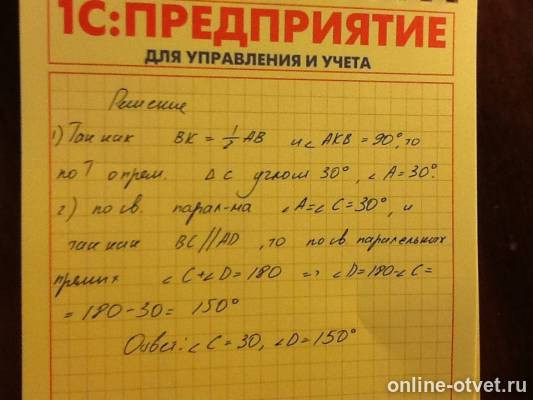 1С:ПРЕДПРИЯТИЕ
ДЛЯ УПРАВЛЕНИЯ И УЧЕТА
Решение
1) Так как BK = 1/2 AB и ∠ AKB = 90°, то
по Т о прям. Δ с углом 30°, ∠A = 30°.
2) по св. парал-ма ∠A = ∠C = 30°, и
так как BC // AD, то по св. паралельных
прямых ∠C + ∠D = 180 => ∠D = 180 - ∠C =
= 180 - 30 = 150°
Ответ: ∠C = 30, ∠D = 150°
online-otvet.ru